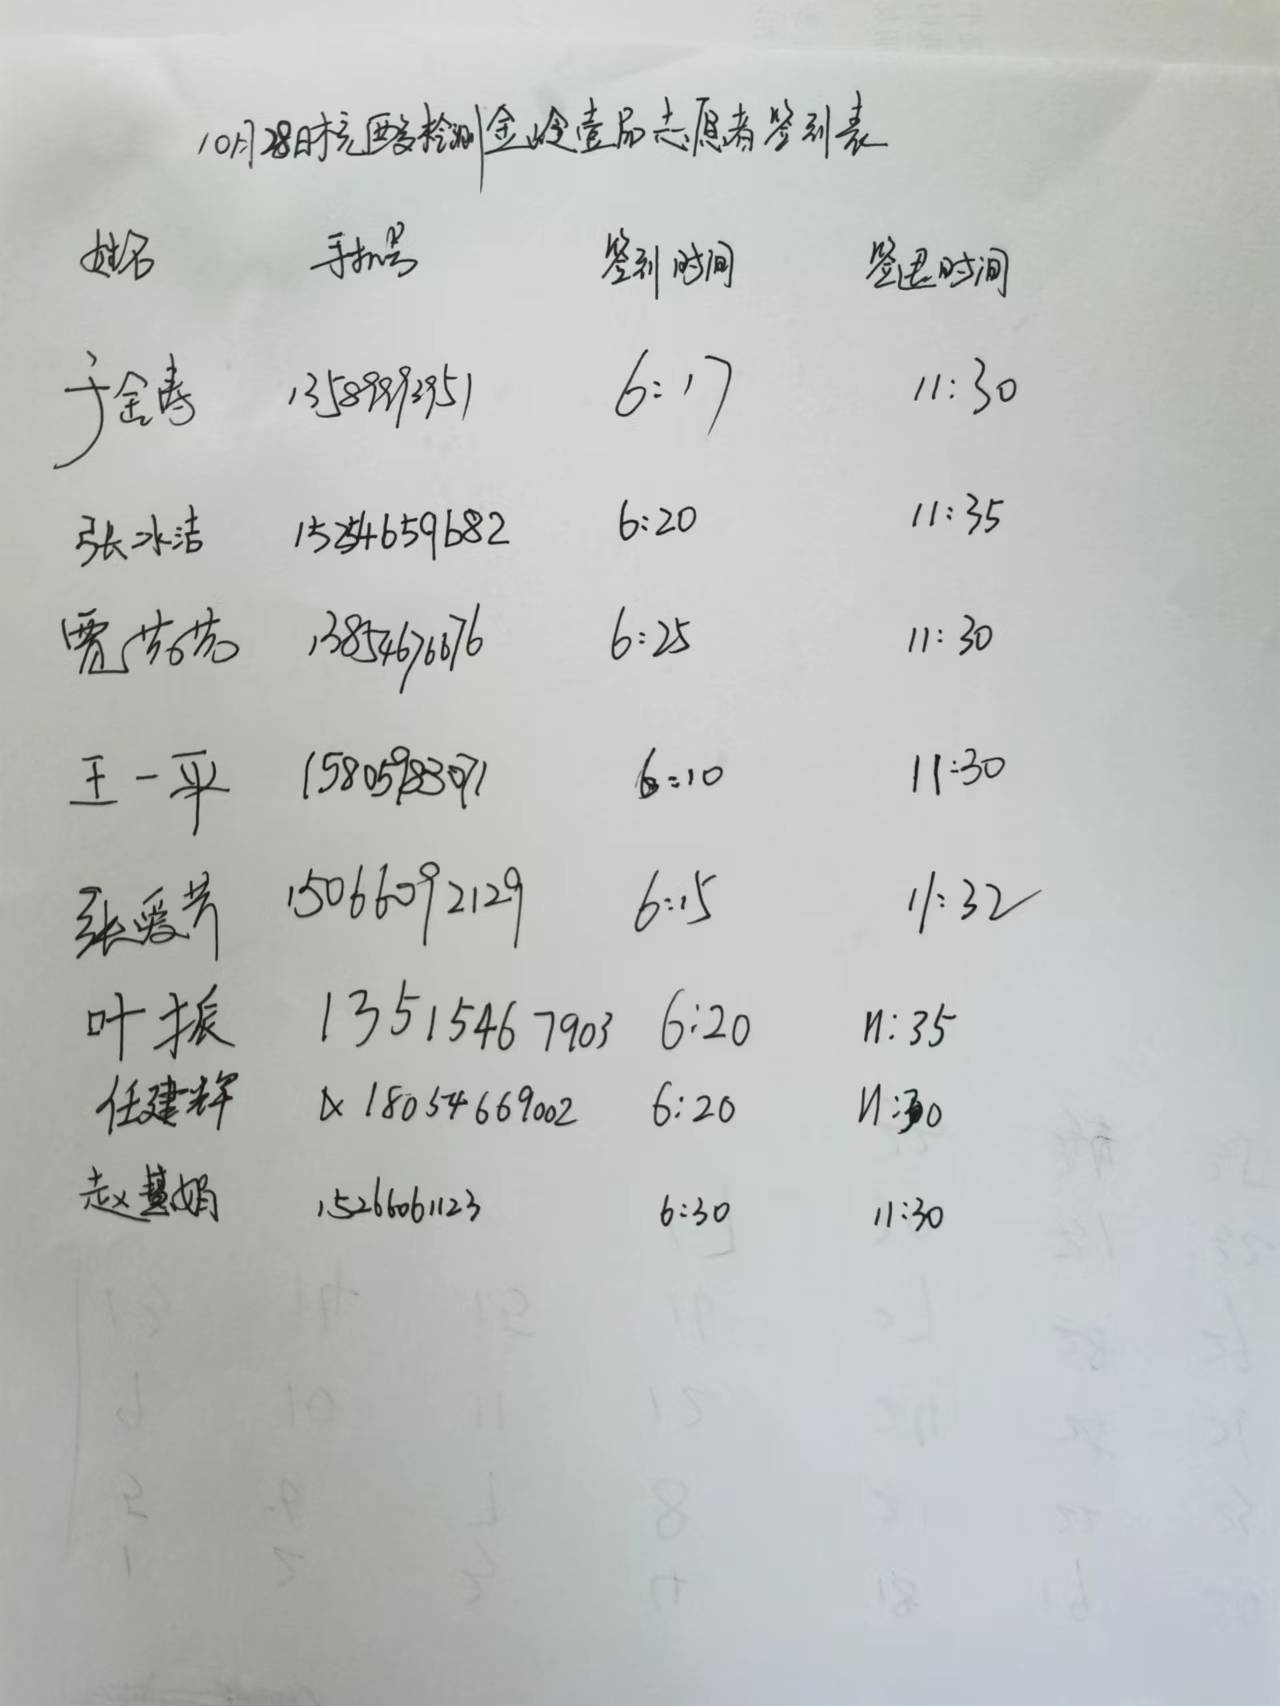 10月28日核酸检测金岭壹品志愿者签到表
姓名 手机号 签到时间 签退时间
于金寿 13589993951 6:17 11:30
张冰洁 15254659682 6:20 11:35
贾芳芳 13854676676 6:25 11:30
王一平 15805983071 6:10 11:30
张爱芳 15066092129 6:15 11:32
叶振 13515467903 6:20 11:35
任建辉 18054669002 6:20 11:30
赵慧娟 15266061123 6:30 11:30